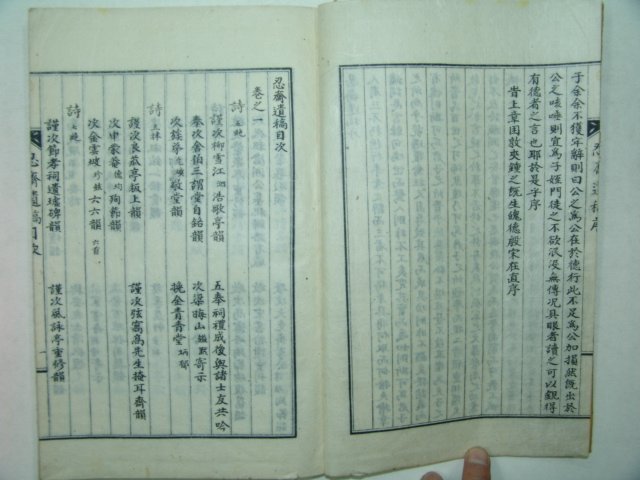 子余余不獲牢辭則曰公之爲公在於德行此不足爲公加損然旣出於
公之咳唾則宜爲子姪門徒之不欲泯沒無傳况具眼者讀之可以覰得
有德者之言也耶於是乎序
歲上章困敦夾鍾之旣生魄德殷宋在直序
忍齋遺稿序
忍齋遺稿目次
卷之一
詩 五絶
謹次柳雪江泗浩歌亭韻 五奉祠禮成後與諸士友共吟
奉次舍伯三謂堂自銘韻 次梁梅山 寄示
次錦尊 敬堂韻 挽金青青堂炳郁
詩 五律
謹次良蔽亭板上韻 謹次弦窩高先生掩耳齋韻
次申蒙菴德均殉節韻
次金雲坡珍鉉六六韻 六首
詩 七絶
謹次節孝祠遺墟碑韻 謹次風詠亭重修韻
忍齋遺稿目次
一